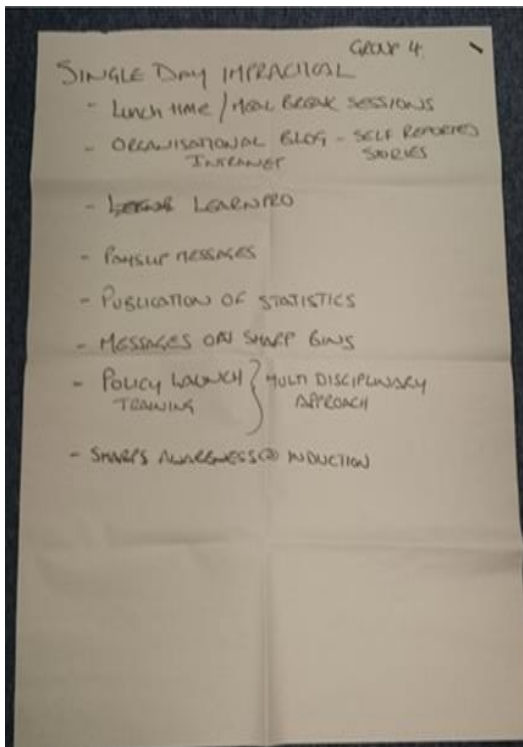 GROUP 4
SINGLE DAY IMPRACTICAL
- LUNCH TIME / MEAL BREAK SESSIONS
- ORGANISATIONAL BLOG - SELF REPORTED
INTRANET STORIES
- LEARNPRO
- PAYSLIP MESSAGES
- PUBLICATION OF STATISTICS
- MESSAGES ON SHARP BINS
- POLICY LAUNCH } MULTI DISCIPLINARY
TRAINING APPROACH
- SHARPS AWARENESS @ INDUCTION